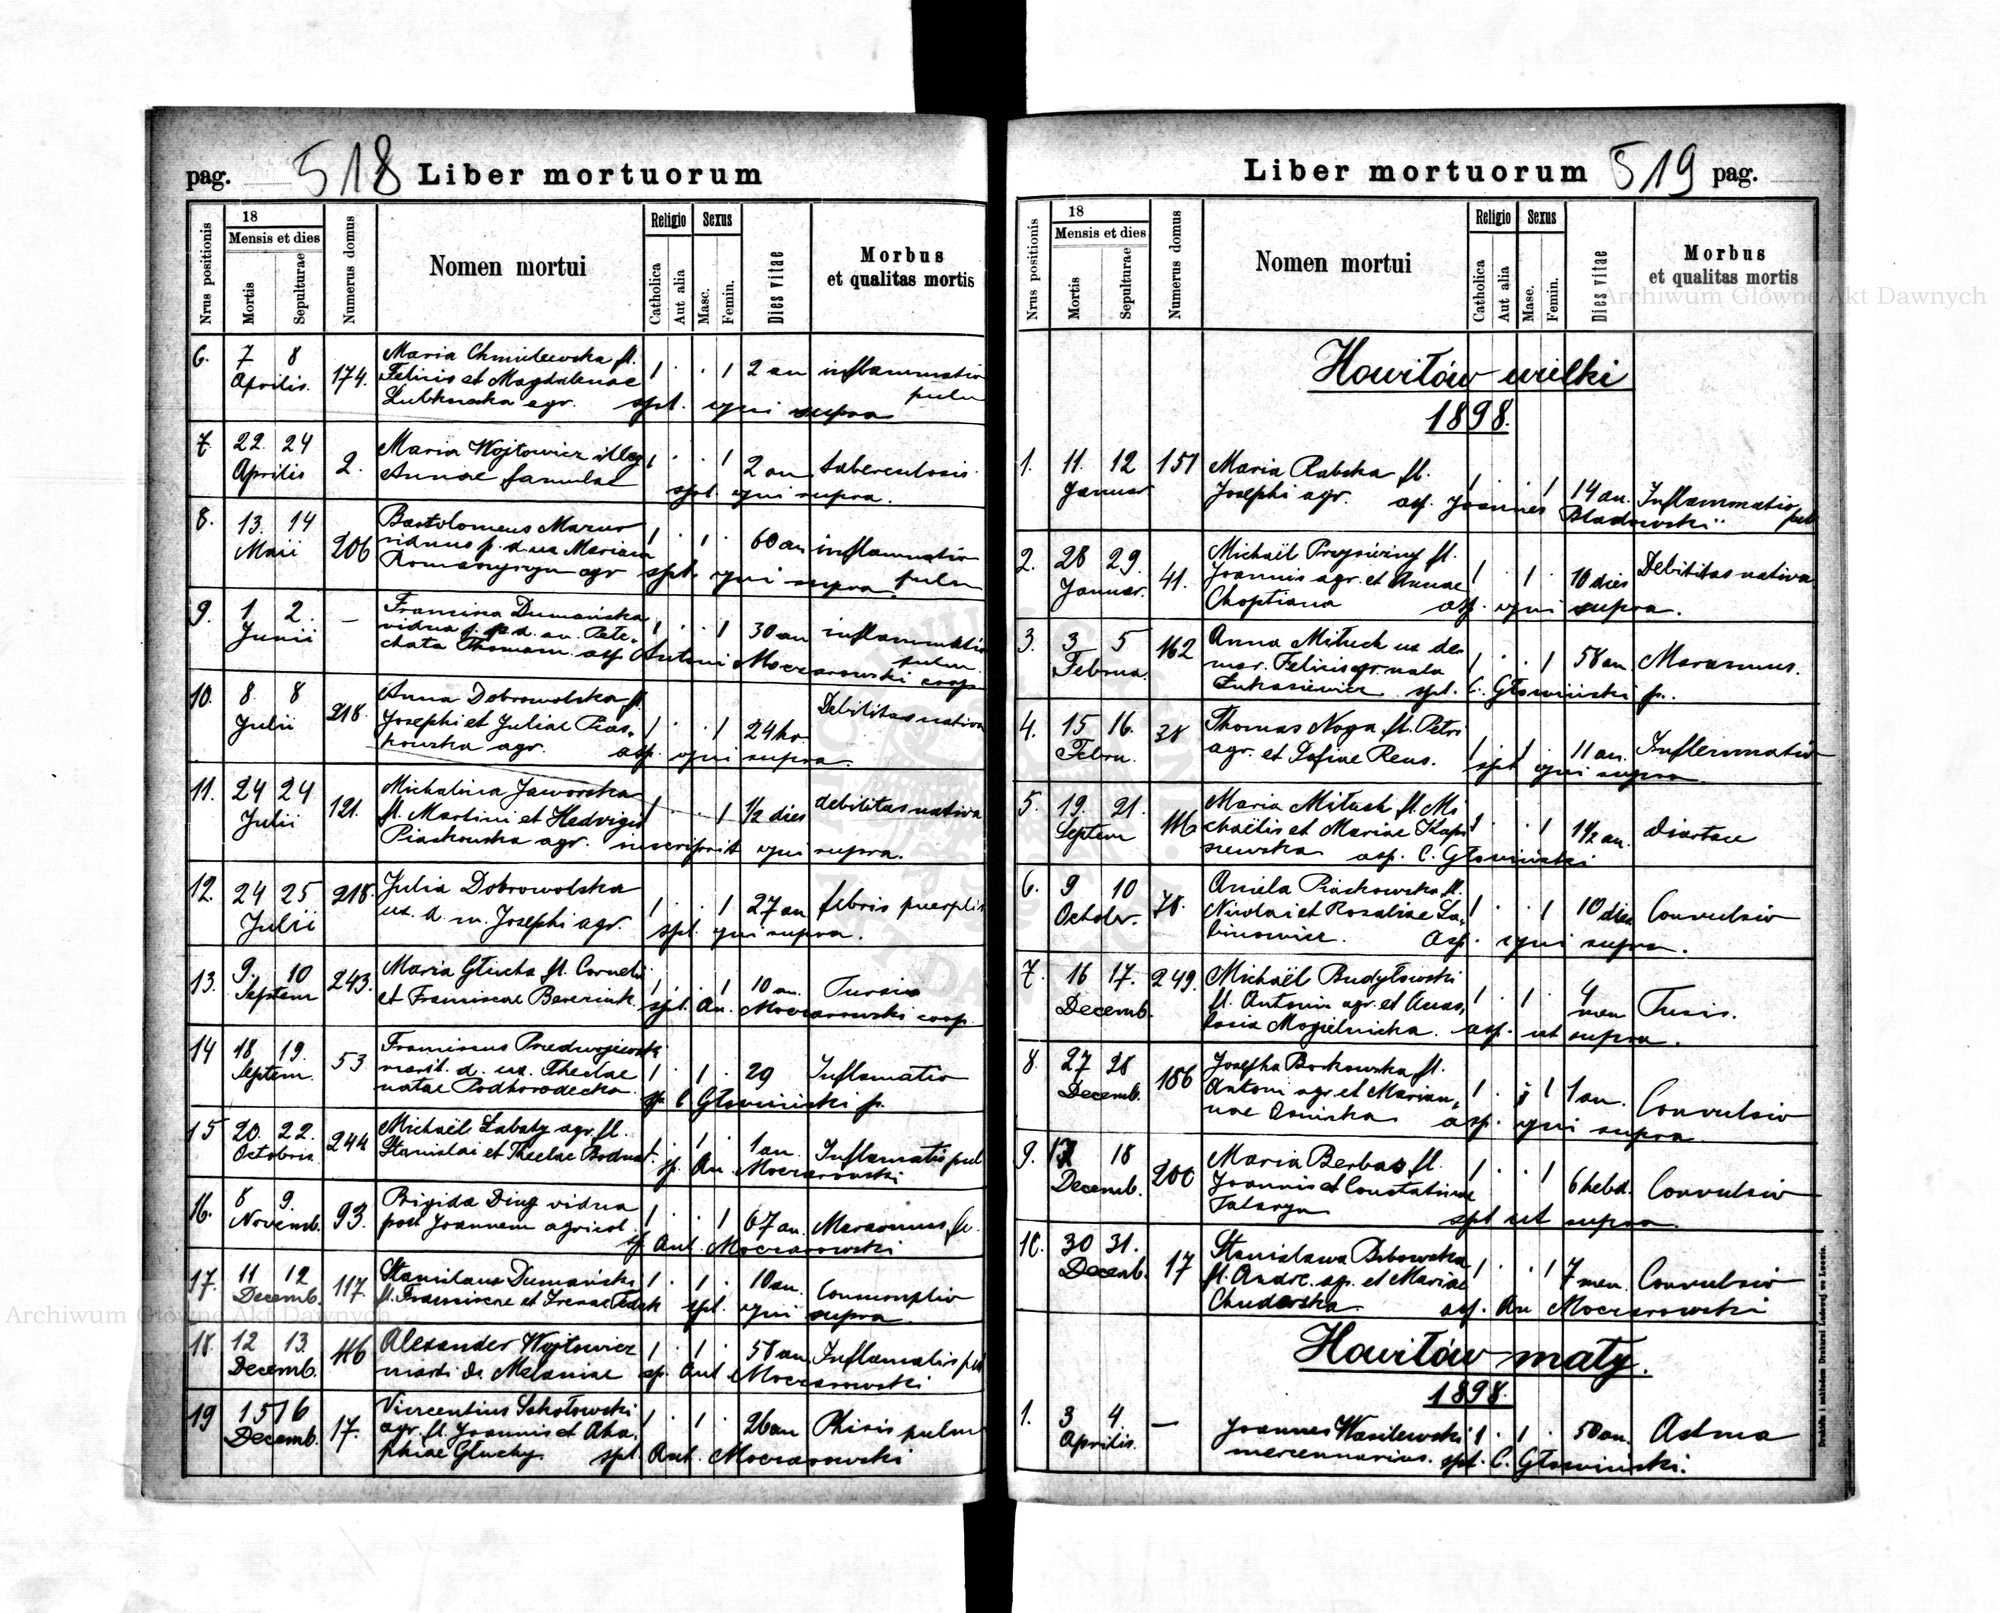 pag. 518 Liber mortuorum
Nrus positionis
18
Mensis et dies
Mortis
Sepulturae
Numerus domus
Nomen mortui
Religio
Catholica
Aut alia
Sexus
Masc.
Femin.
Dies vitae
Morbus
et qualitas mortis
6. 7 8 174. Maria Chmielewska fl. 1 . . 1 2 an inflammatio
Aprilis. Felicis et Magdalenae pulm
agr. spt. qui supra
7. 22. 24 2. Maria Wojtowicz illeg 1 . . 1 2 an tuberculosis
Aprilis Annae famulae
spt. qui supra.
8. 13. 14 206 Bartolomeus Mazur 1 . 1 . 60 an inflammatio
Maii viduus p. d. ux Mariam pulm
agr spt. qui supra.
9. 1. 2. – Francisca Dumańska 1 . . 1 30 an inflammatio
Junii vidua pulm
Thomam. asp. Antoni Moczarowski coop
10. 8. 8 218. Anna Dobrowolska fl. 1 . . 1 24 ho. Debilitas nativa
Julii Josephi et Juliae Pias-
kowska agr. asp. qui supra.
11. 24 24 121. Michalina Jaworska 1 . . 1 1/2 dies debilitas nativa
Julii fl. Martini et Hedvigis
Piaskowska agr. inscripsit qui supra.
12. 24 25 218. Julia Dobrowolska 1 . . 1 27 an febris
Julii ux. d. m. Josephi agr.
spt. qui supra.
13. 9. 10 243. Maria Głucha fl. Corneli 1 . . 1 10 an.
Septem et Franciscae
spt. An. Moczarowski coop.
14 18 19. 53 Franciscus 1 . 1 . 29 Inflamatio
Septem. marit. d. ux. Theclae
natae Podhorodecka sp. C Głowiński p.
15 20. 22. 244 Michaël Labaty agr. fl. 1 . 1 . 1 an. Inflamatio pul
Octobris Stanislai et Theclae
sp. An. Moczarowski
16. 8 9. 93. Brigida vidua 1 . . 1 67 an. Marasmus
Novemb. post Joannem agricol.
sp. Ant. Moczarowski
17. 11 12 117. Stanislaus Dumański 1 . 1 . 10 an. Consumptio
Decemb. fl. Franciscae et Irenae spt. qui supra.
18. 12 13. 116 Alexander Wojtowicz 1 . 1 . 58 an. Inflamatio pul
Decemb. Melaniae sp. Ant Moczarowski
19 15 16 17. Vincentius Sokołowski 1 . 1 . 26 an Phisis pulm
Decemb. agr. fl. Joannis et Aha-
phiae Głuchy. spt. Ant. Moczarowski
Liber mortuorum 519 pag.
Nrus positionis
18
Mensis et dies
Mortis
Sepulturae
Numerus domus
Nomen mortui
Religio
Catholica
Aut alia
Sexus
Masc.
Femin.
Dies vitae
Morbus
et qualitas mortis
Howiłów wielki
1898.
1. 11. 12 151 Maria Rabska fl. 1 . . 1 14 an. Inflammatio
Januar Josephi agr. asp. Joannes Bladowski pul
2. 28 29. 41. Michaël fl. 1 . 1 . 10 dies Debilitas nativa
Januar. Joannis agr. et Annae
Choptiana asp. qui supra.
3. 3 5 162 Anna Miłuch ux de 1 . . 1 58 an. Marasmus.
Februa. mar. Felicis agr nata
Łukasiewicz spt. C. Głowiński p.
4. 15 16. 38 Thomas Noga fl. Petri 1 . 1 . 11 an. Inflammatio
Febru. agr. et Sofiae Rens.
spt qui supra
5. 19. 21. 116 Maria Miłuch fl. Mi 1 . . 1 1 1/2 an.
Septem chaëlis et Mariae
asp. C. Głowiński
6. 9 10 78. Aniela Piaskowska fl. 1 . . 1 10 dies Convulsio
October. Nicolai et Rosaliae La-
binowicz. asp. qui supra.
7. 16 17. 249. Michaël Budyłowski 1 . 1 . 4 men Tusis.
Decemb. fl. Antonii agr. et Anas-
tasia Mogielnicka. asp. ut supra.
8. 27 28 156 Josepha Borkowska fl. 1 . . 1 1 an. Convulsio
Decemb. Antoni agr. et Marian-
nae Osinska asp. qui supra
9. 18 200 Maria Berbas fl. 1 . . 1 6 hebd. Convulsio
Decemb. Joannis et Constatinae
Tataryn spt ut supra.
10. 30 31. 17 Stanislawa Bibowska 1 . . 1 7 men. Convulsio
Decemb. fl. Andr. agr. et Mariae
Chudorska. asp. An Moczarowski
Howiłów mały.
1898.
1. 3 4. – Joannes Wasilewski 1 . 1 . 50 an. Astma
Aprilis. mercennarius. spt. C. Głowiński.
Archiwum Główne Akt Dawnych
Archiwum Główne Akt Dawnych